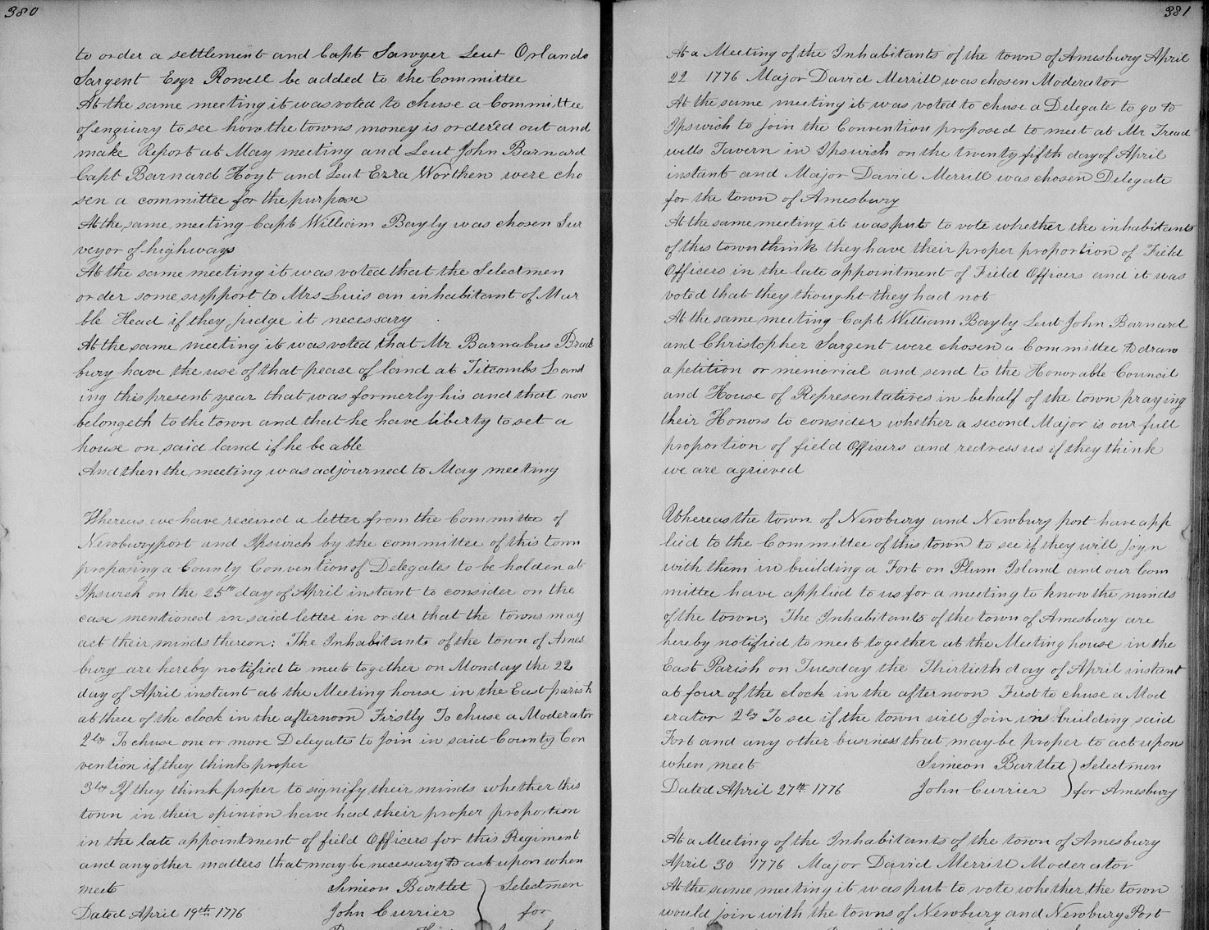 380
to order a settlement and Capt Sawyer Leut Orlando
Sargent Esqr Rowell be added to the Committee
At the same meeting it was voted to chuse a Committee
of enqiury to see how the towns money is ordered out and
make Report at May meeting and Leut John Barnard
Capt Barnard Hoyt and Leut Ezra Worthen were cho
sen a committee for the purpose
At the same meeting Capt William Bayly was chosen Sur
veyor of highways
At the same meeting it was voted that the Selectmen
order some support to Mrs Luis an inhabitant of Mar
ble Head if they judge it necessary
At the same meeting it was voted that Mr Barnabus Brad
bury have the use of that peace of land at Titcombs Land
ing this present year that was formerly his and that now
belongeth to the town and that he have liberty to set a
house on said land if he be able
And then the meeting was adjourned to May meeting
Whereas we have received a letter from the Committee of
Newburyport and Ipswich by the committee of this town
proposing a County Convention of Delegates to be holden at
Ipswich on the 25th day of April instant to consider on the
case mentioned in said letter in order that the towns may
act their minds thereon: The Inhabitants of the town of Ames
bury are hereby notified to meet together on Monday the 22
day of April instant at the Meeting house in the East parish
at three of the clock in the afternoon Firstly To chuse a Moderator
2ly To chuse one or more Delegates to Join in said County Con
vention if they think proper
3ly If they think proper to signify their minds whether this
town in their opinion have had their proper proportion
in the late appointment of field Officers for this Regiment
and any other matters that may be necessary to act upon when
meet Simeon Bartlet } Selectmen
Dated April 19th 1776 John Currier for
381
At a Meeting of the Inhabitants of the town of Amesbury April
22 1776 Major David Merrill was chosen Moderator
At the same meeting it was voted to chuse a Delegate to go to
Ipswich to join the Convention proposed to meet at Mr Tread
wells Tavern in Ipswich on the twenty fifth day of April
instant and Major David Merrill was chosen Delegate
for the town of Amesbury
At the same meeting it was put to vote whether the inhabitants
of this town think they have their proper proportion of Field
Officers in the late appointment of Field Officers and it was
voted that they thought they had not
At the same meeting Capt William Bayly Leut John Barnard
and Christopher Sargent were chosen a Committee to draw
a petition or memorial and send to the Honorable Council
and House of Representatives in behalf of the town praying
their Honors to consider whether a second Major is our full
proportion of field Officers and redress us if they think
we are agrieved
Whereas the town of Newbury and Newbury port have app
lied to the Committee of this town to see if they will joyn
with them in building a Fort on Plum Island and our Com
mittee have applied to us for a meeting to know the minds
of the town; The Inhabitants of the town of Amesbury are
hereby notified to meet together at the Meeting house in the
East Parish on Tuesday the Thirtieth day of April instant
at four of the clock in the afternoon First to chuse a Mod
erator 2ly To see if the town will Join in building said
Fort and any other business that may be proper to act upon
when meet Simeon Bartlet } Selectmen
Dated April 27th 1776 John Currier for Amesbury
At a Meeting of the Inhabitants of the town of Amesbury
April 30 1776 Major David Merrill Moderator
At the same meeting it was put to vote whether the town
would join with the towns of Newbury and Newbury Port